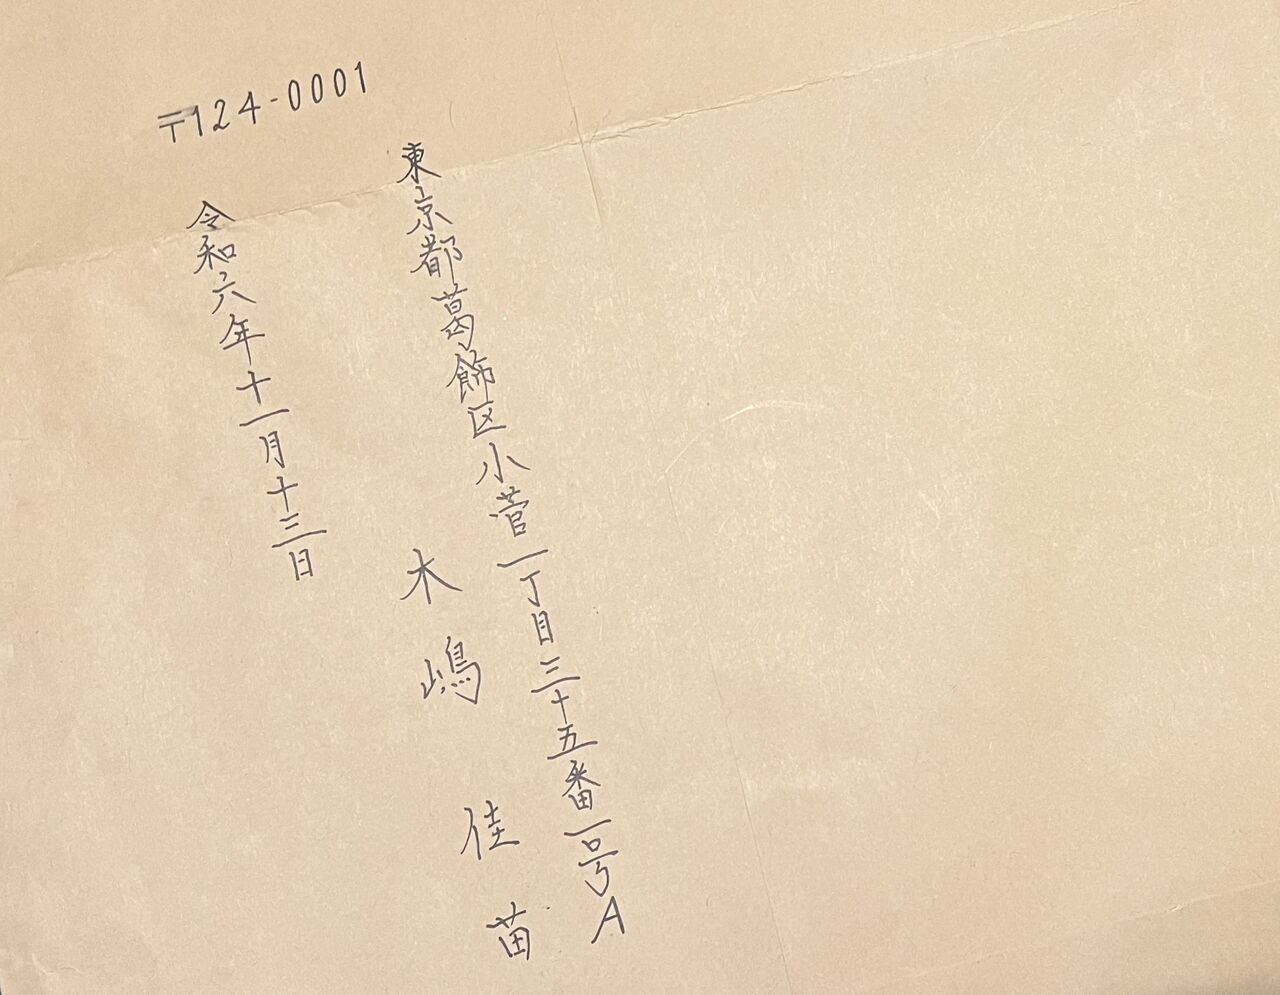 〒124-0001
東京都葛飾区小菅一丁目三十五番一号A
木嶋佳苗
令和六年十一月十三日